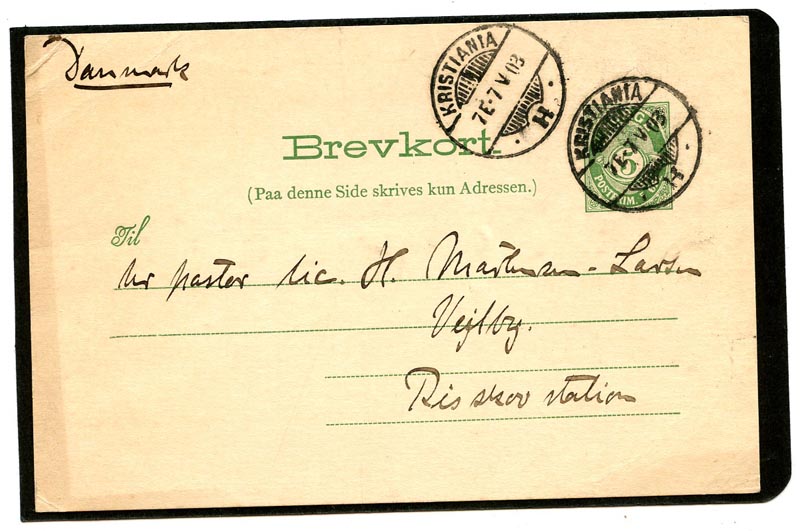 Danmark
KRISTIANIA
7E-7 V 03
H
KRISTIANIA
7E-7 V 03
H
Brevkort.
(Paa denne Side skrives kun Adressen.)
5
POSTFRIM.
Til
Hr pastor lic. H. Martensen-Larsen
Vejlby.
Risskov station